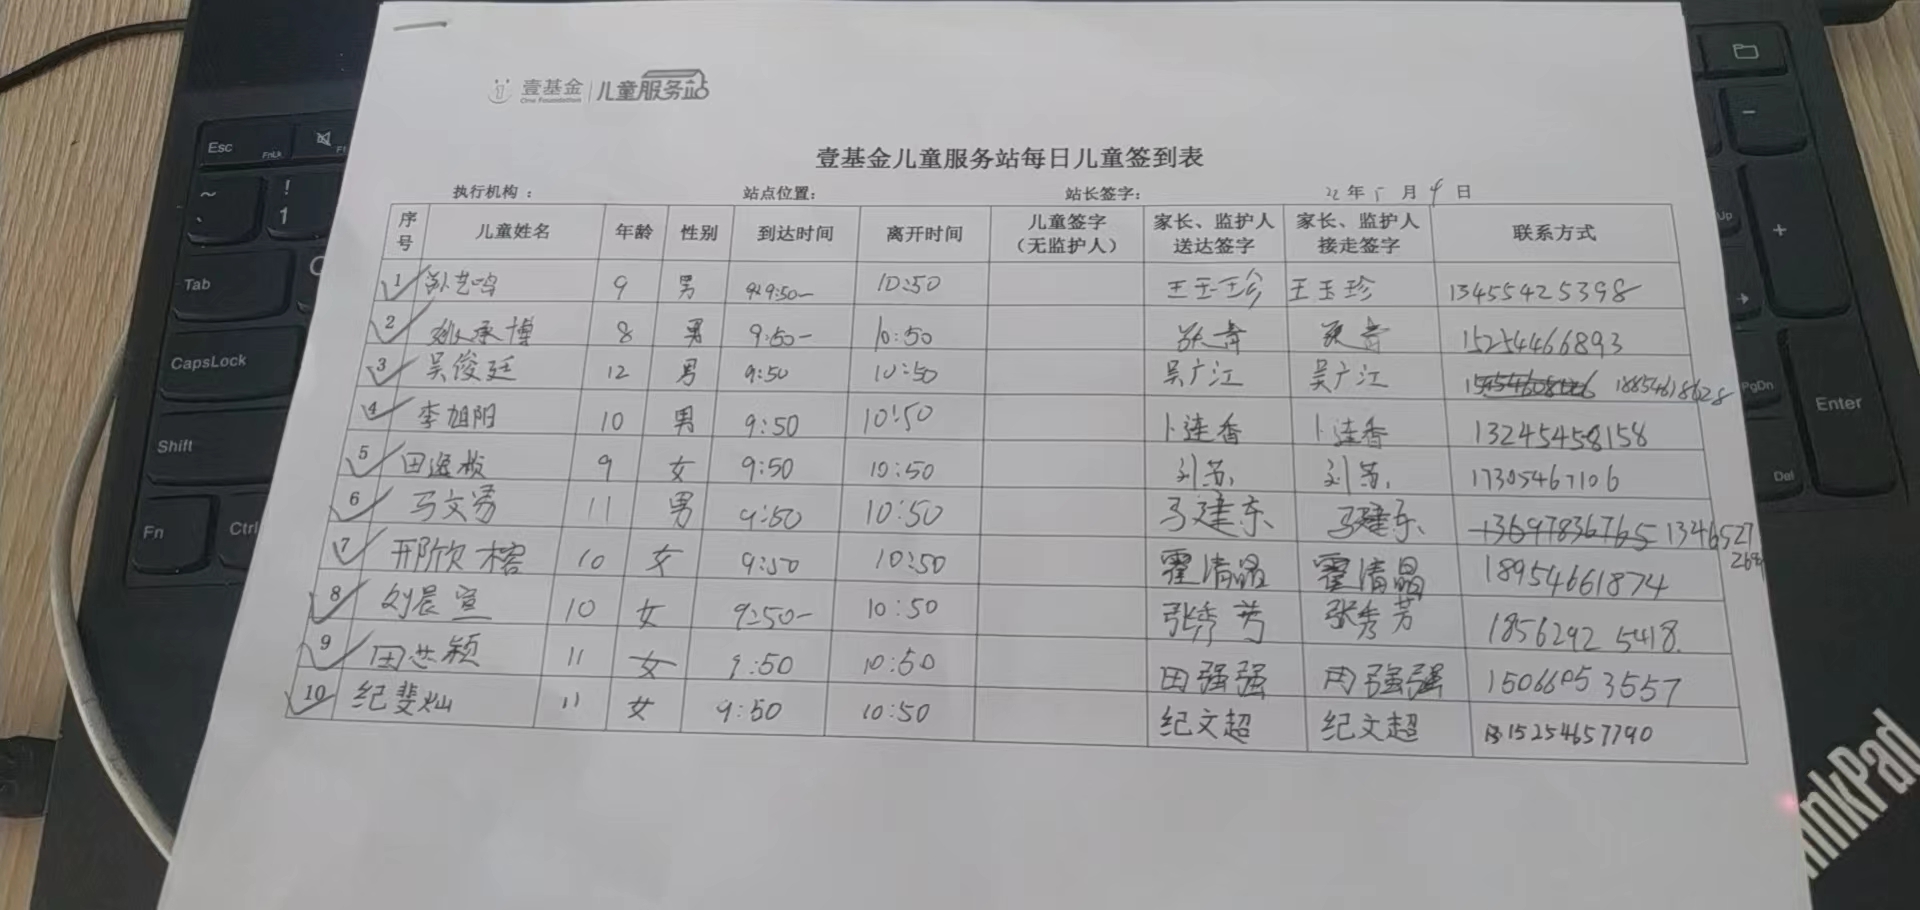 壹基金 One Foundation 儿童服务站
壹基金儿童服务站每日儿童签到表
执行机构： 站点位置： 站长签字： 22年5月4日
序号 儿童姓名 年龄 性别 到达时间 离开时间 儿童签字（无监护人） 家长、监护人送达签字 家长、监护人接走签字 联系方式
1 9 男 9:50 10:50 王玉珍 王玉珍 13455425398
2 承博 8 男 9:50 10:50 15254466893
3 吴俊廷 12 男 9:50 10:50 吴广江 吴广江 18854618628
4 李旭阳 10 男 9:50 10:50 卜连香 卜连香 13245458158
5 田 9 女 9:50 10:50 刘苏 刘苏 17305467106
6 马文 11 男 9:50 10:50 马建东 马建东 13697836765 1346527
7 邢欣榕 10 女 9:50 10:50 霍清晶 霍清晶 18954661874
8 刘晨宣 10 女 9:50 10:50 张秀芳 张秀芳 18562925418
9 田 颖 11 女 9:50 10:50 田强强 田强强 15066053557
10 纪斐灿 11 女 9:50 10:50 纪文超 纪文超 15254657790
Esc
FnLk
Tab
CapsLock
Shift
Fn
Ctrl
PgDn
Enter
Del
ThinkPad